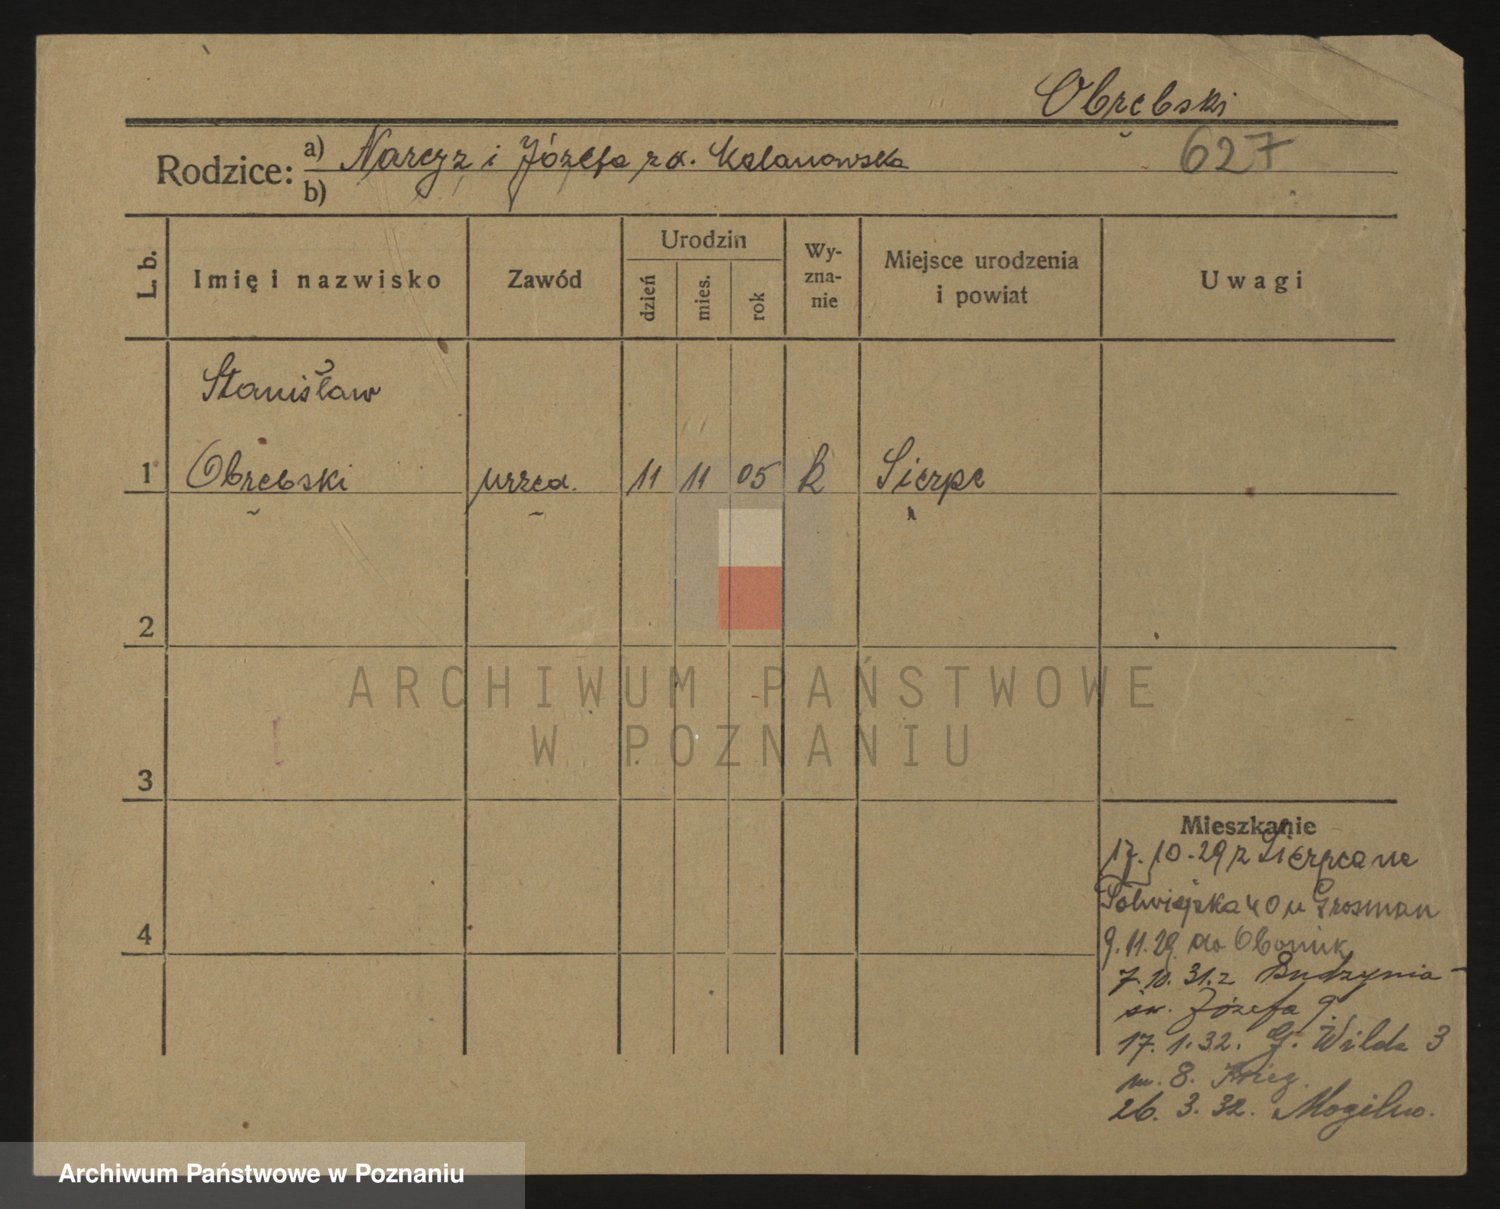 Obrębski
627
Rodzice: a) Narcyz i Józefa zd. Kalanowska
b)
L. b. Imię i nazwisko Zawód Urodzin dzień mies. rok Wyznanie Miejsce urodzenia i powiat Uwagi
Stanisław
1 Obrębski urzęd. 11 11 05 k Sierpc
2
3
4
Mieszkanie
17.10.29 z Sierpca na
Półwiejska 40 u Grosman
9.11.29 do Obornik
7.10.31 z Budzynia -
św. Józefa 9
17.1.32. G. Wilda 3
m. 8.
26.3.32. Mogilno.
ARCHIWUM PAŃSTWOWE
W POZNANIU
Archiwum Państwowe w Poznaniu